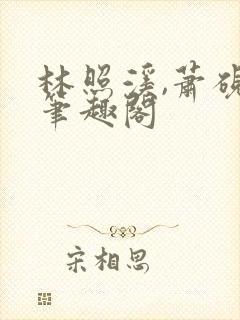 林照溪,萧砚
笔趣阁
宋相思